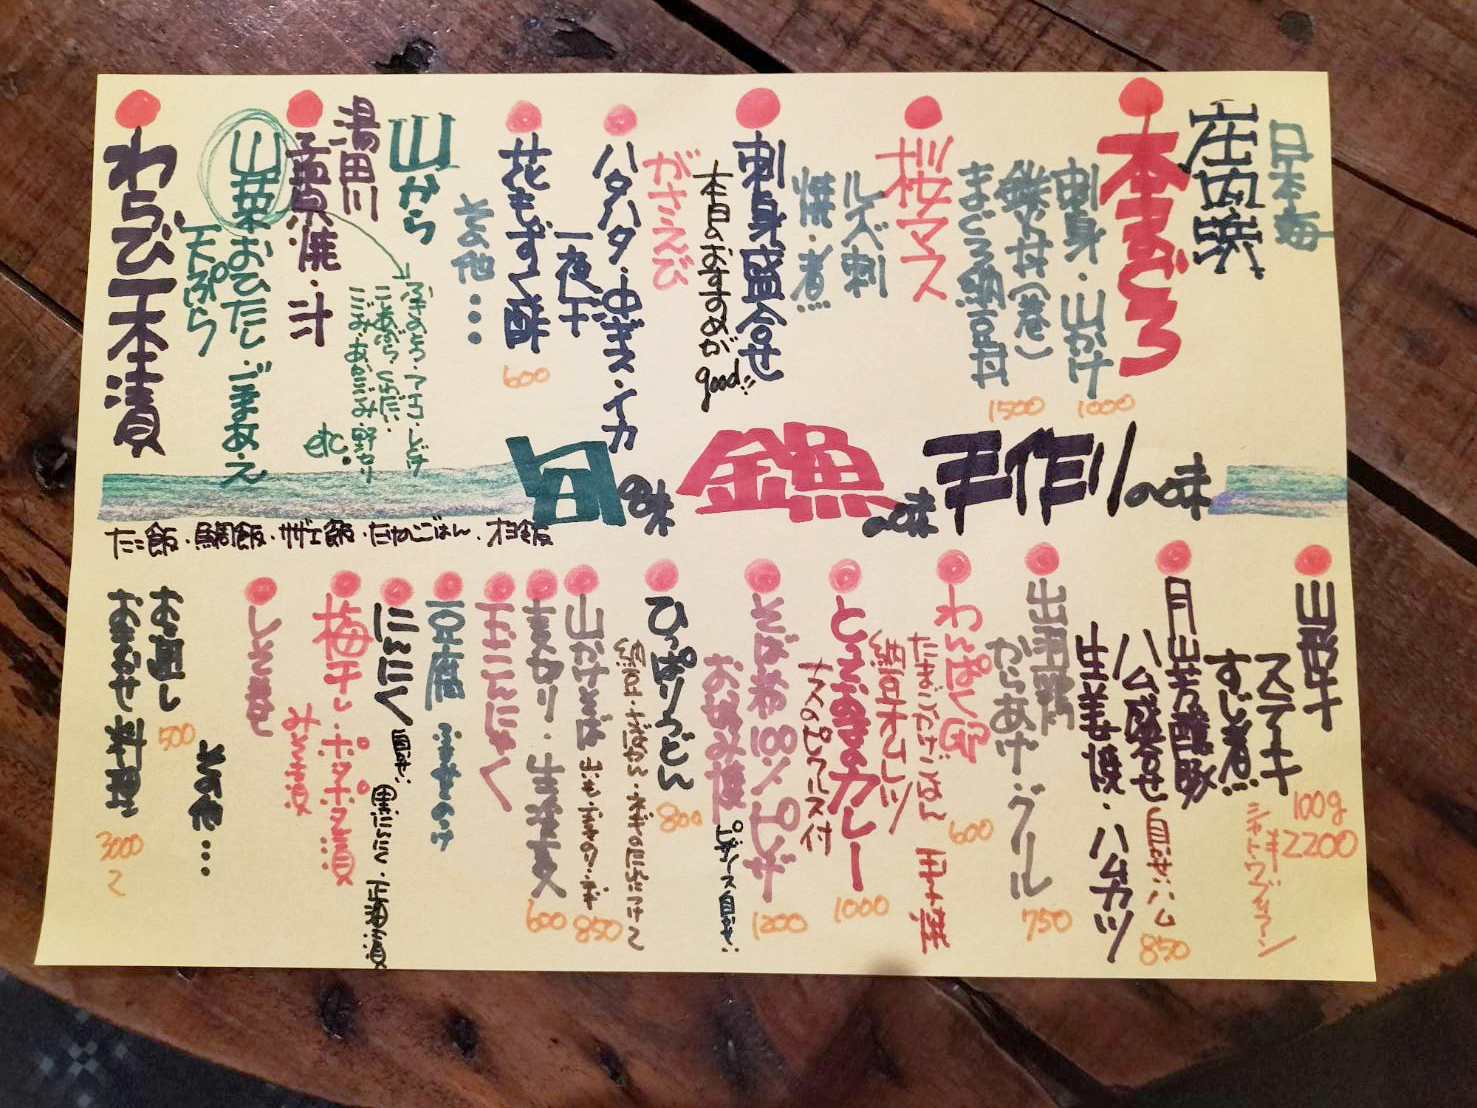 日本海
庄内浜
本まぐろ
刺身・山かけ
1000
鉄火丼(巻)
まぐろ納豆丼
1500
桜マス
ルイベ刺
焼・煮
刺身盛合せ
本日のおすすめが
good!!
がさえび
ハタハタ・中ギス・イカ
一夜干
花もずく酢
600
その他…
山から
湯田川
孟宗焼・汁
山菜おひたし・ごまあえ
天ぷら
ふきのとう・アマコ・しどけ
こごみ・あかこごみ・野セリ
etc.
わらび一本漬
旬の味
金魚の味
手作りの味
たこ飯・鯛飯・サザエ飯・たけのこごはん・
山形牛
ステーキ
すじ煮
100g
2200
月山芳醸豚
ハム盛合せ
自家製ハム
生姜焼・ハムカツ
850
出羽鴨
からあげ・グリル
750
わんぱく卵
たまごかけごはん
600
玉子焼
納豆オムレツ
とっておきのカレー
ナスのピクルス付
1000
そば粉100%ピザ
お好み焼
1200
ひっぱりうどん
800
納豆・さばかん・ネギのたれにつけて
山かけそば
850
麦切り・生蕎麦
600
玉こんにゃく
豆腐
にんにく
黒にんにく・正油漬
梅干し・ポタポタ漬
みそ漬
しそ巻
その他…
お通し
500
おまかせ料理
3000